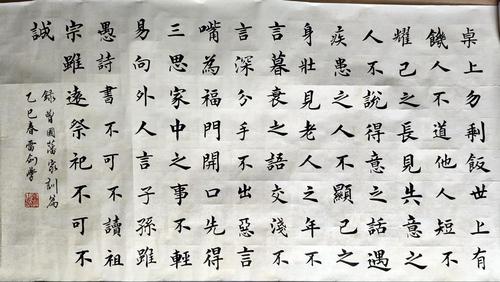 桌上勿剩飯世上有
饑人不道他人短不
耀己之長見失意之
人不說得意之話遇
疾患之人不顯己之
身壯見老人之年不
言暮衰之語交淺不
言深分手不出惡言
嘴為福門開口先得
三思家中之事不輕
易向外人言子孫雖
愚詩書不可不讀祖
宗雖遠祭祀不可不
誠
錄曾國藩家訓篇
乙巳春雷